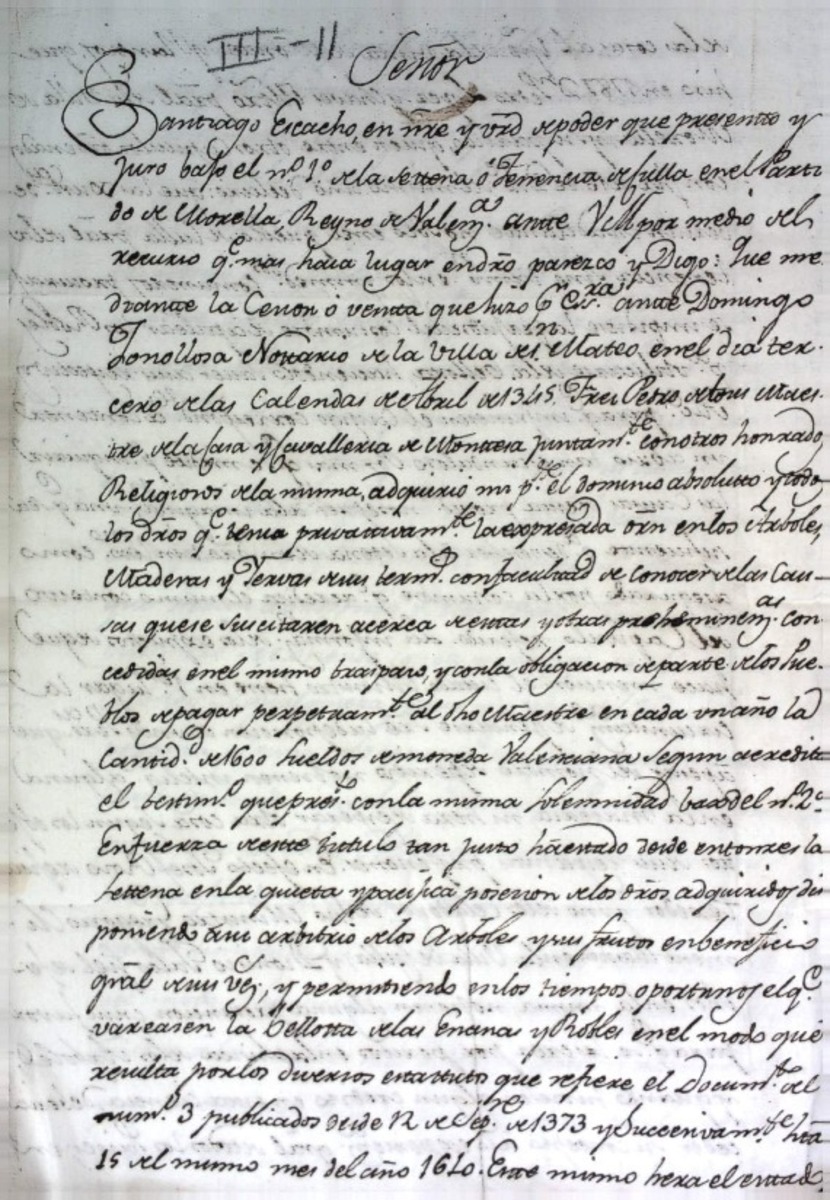 III-11
Señor
Santiago Escacho, en nr̃e y vrd de poder que presento y
juro baxo el nº 1º de la Settena ó Tenencia de Culla en el Parti
do de Morella, Reyno de Valenª ante VM por medio del
recurso qe mas haia lugar en dr̃o parezco y Digo: Que me
diante la Cesion ó ventta que hizo pr Essra antte Domingo
Fonollosa Nottario de la Villa de Sn Matteo, en el dia ter
cero de las Calendas de Abril de 1345 Frei Pedro de tous Maes
tre de la Casa y Cavalleria de Montesa juntamte con otros honrados
Religiosos de la misma, adquirio mi pte el dominio absolutto y todos
los dr̃os qe tenia privattivamte la expresada orn en los Arboles,
Maderas y Yervas de sus termos con facultad de conocer de las Cau-
sas que se suscitaren acerca de estas y otras preheminenas con
cedidas en el mismo traspaso, y con la obligacion de parte de los Pue
blos de pagar perpetuamte al dho Maestre en cada un año la
Cantidd de 1600 sueldos de moneda Valenciana Segun acredita
el testimº que prestº con la misma solemnidad baxo del nº 2º
En fuerza de este titulo tan justo ha estado desde entonces la
Settena en la quieta y pacifica posesion de los dr̃os adquiridos dis
poniendo a su arbitrio de los Arboles y sus frutos en beneficio
gral de sus vezs, y permitiendo en los tiempos oportunos el qe
vareasen la Bellotta de las Encinas y Robles en el modo que
resulta por los diversos estattutos que refiere el Documto del
numº 3 publicados desde 12 de Sepre de 1373 y Succesivamte hta
15 del mismo mes del año 1610. Este mismo hera el estado